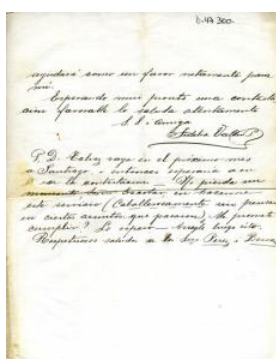 ayudará como un favor netamente para
mí.
Esperando mui pronto una contesta
cion favorable lo saluda atentamente
S. S. i amiga
P. D. Talvez vaya en el próximo mes
a Santiago, i entonces esperaria a
su contestacion No pierda un
momento en hacerme
este servicio (Caballerosamente sin pensar
en ciertos asuntos que pasaron). Me promete
cumplir? Lo espero luego
Respetuosos saludos a la Sra Perez i